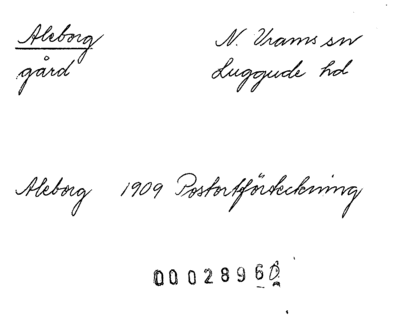 Aleborg N. Vrams sn
gård Luggude hd
Aleborg 1909 Postortförteckning
00028960